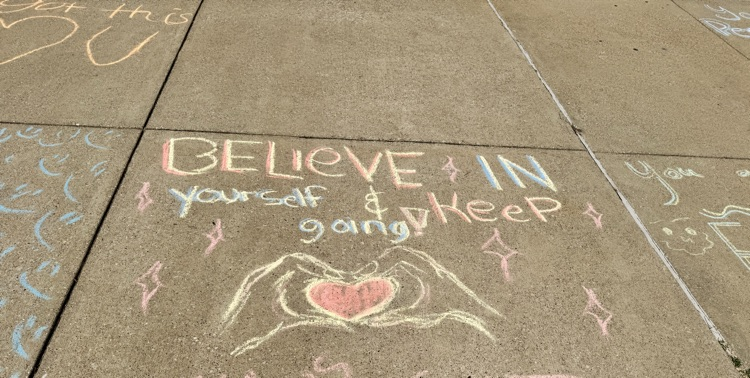 got this
♡ U
BELieVE IN
yourself & Keep
going!
You